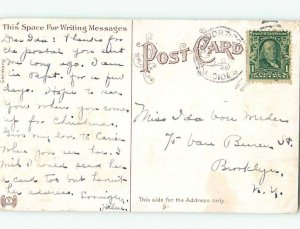 This Space For Writing Messages
Dear Ida: Thanks for
the postal you sent
me long ago. I am
in Bpt. for a few
days. Hope to see
you when you come
up for Christmas.
Give my love to Carrie
when you see her. I
wish I could send her
a card too but haven't
her address. Lovingly,
Helen.
Germany
POST CARD
Miss Ida von
Van Buren St.
Brooklyn,
N.Y.
This side for the Address only.